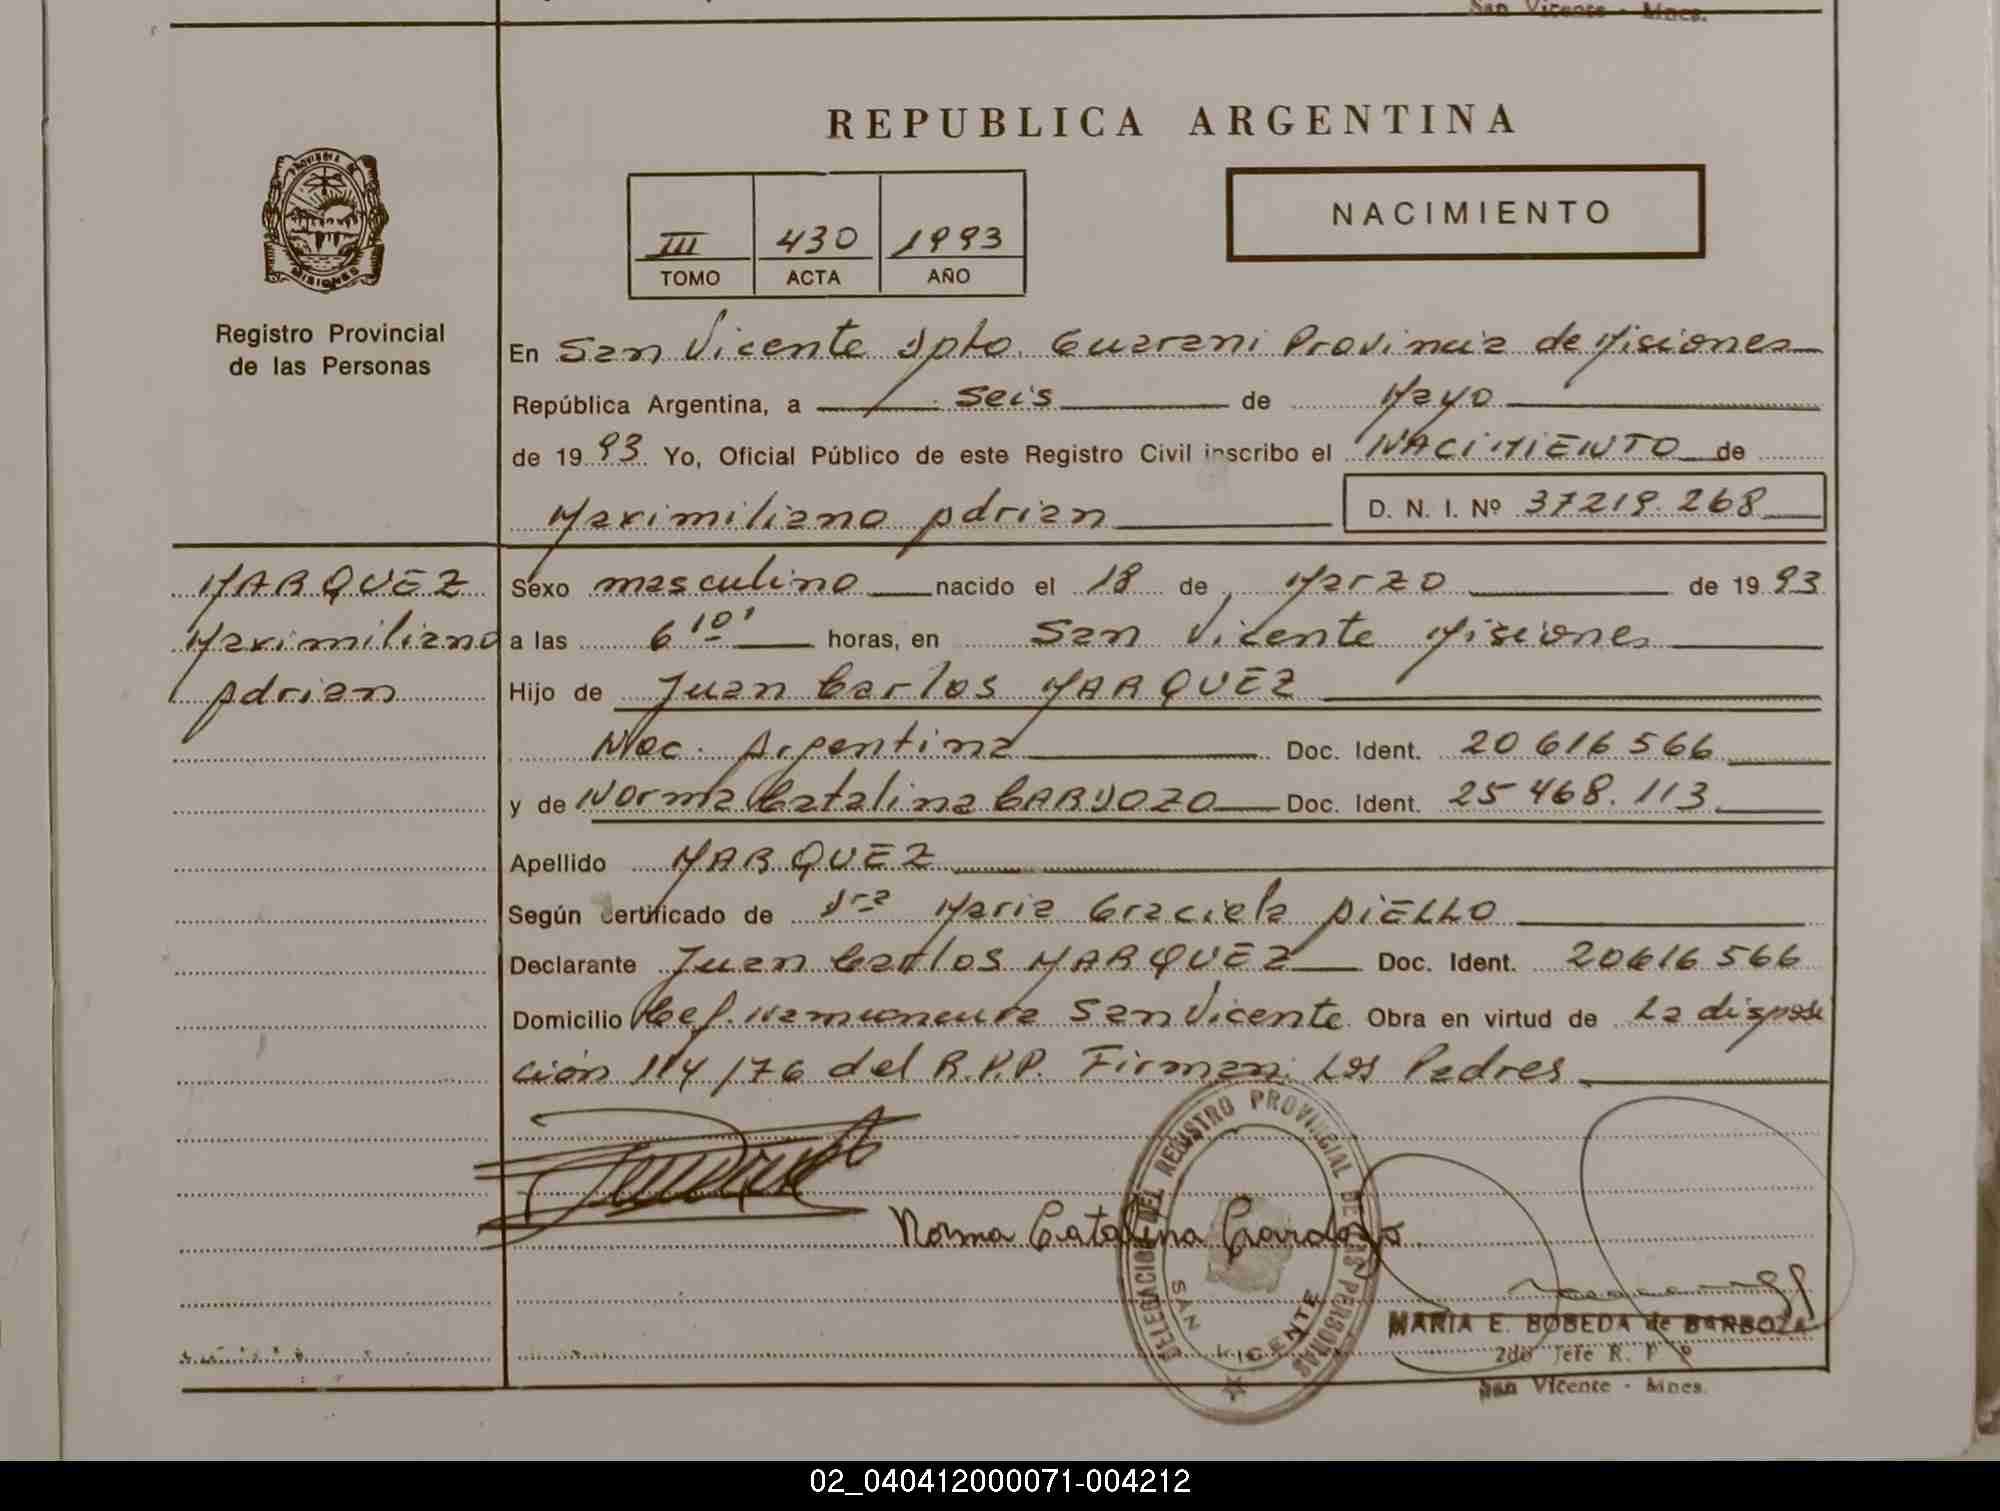 San Vicente - Mnes.
REPUBLICA ARGENTINA
PROVINCIA DE
MISIONES
Registro Provincial
de las Personas
III 430 1993
TOMO ACTA AÑO
NACIMIENTO
En San Vicente Dpto. Guarani Provincia de Misiones
República Argentina, a seis de Mayo
de 1993 Yo, Oficial Público de este Registro Civil inscribo el NACIMIENTO de
Maximiliano Adrian D. N. I. Nº 37219.268
MARQUEZ
Maximiliano
Adrian
Sexo masculino nacido el 18 de Marzo de 1993
a las 6 10' horas, en San Vicente Misiones
Hijo de Juan Carlos MARQUEZ
Nac. Argentina Doc. Ident. 20616566
y de Norma Catalina CARDOZO Doc. Ident. 25468.113
Apellido MARQUEZ
Según certificado de Dra Maria Graciela AIELLO
Declarante Juan Carlos MARQUEZ Doc. Ident. 20616566
Domicilio San Vicente. Obra en virtud de La disposi
ción 114/76 del R.P.P. Firman: Los Padres
Norma Catalina Cardozo
DELEGACION DEL REGISTRO PROVINCIAL DE LAS PERSONAS
SAN VICENTE
MARIA E. BOBEDA de BARBOZA
2do Jefe R. P
San Vicente - Mnes.
02_040412000071-004212